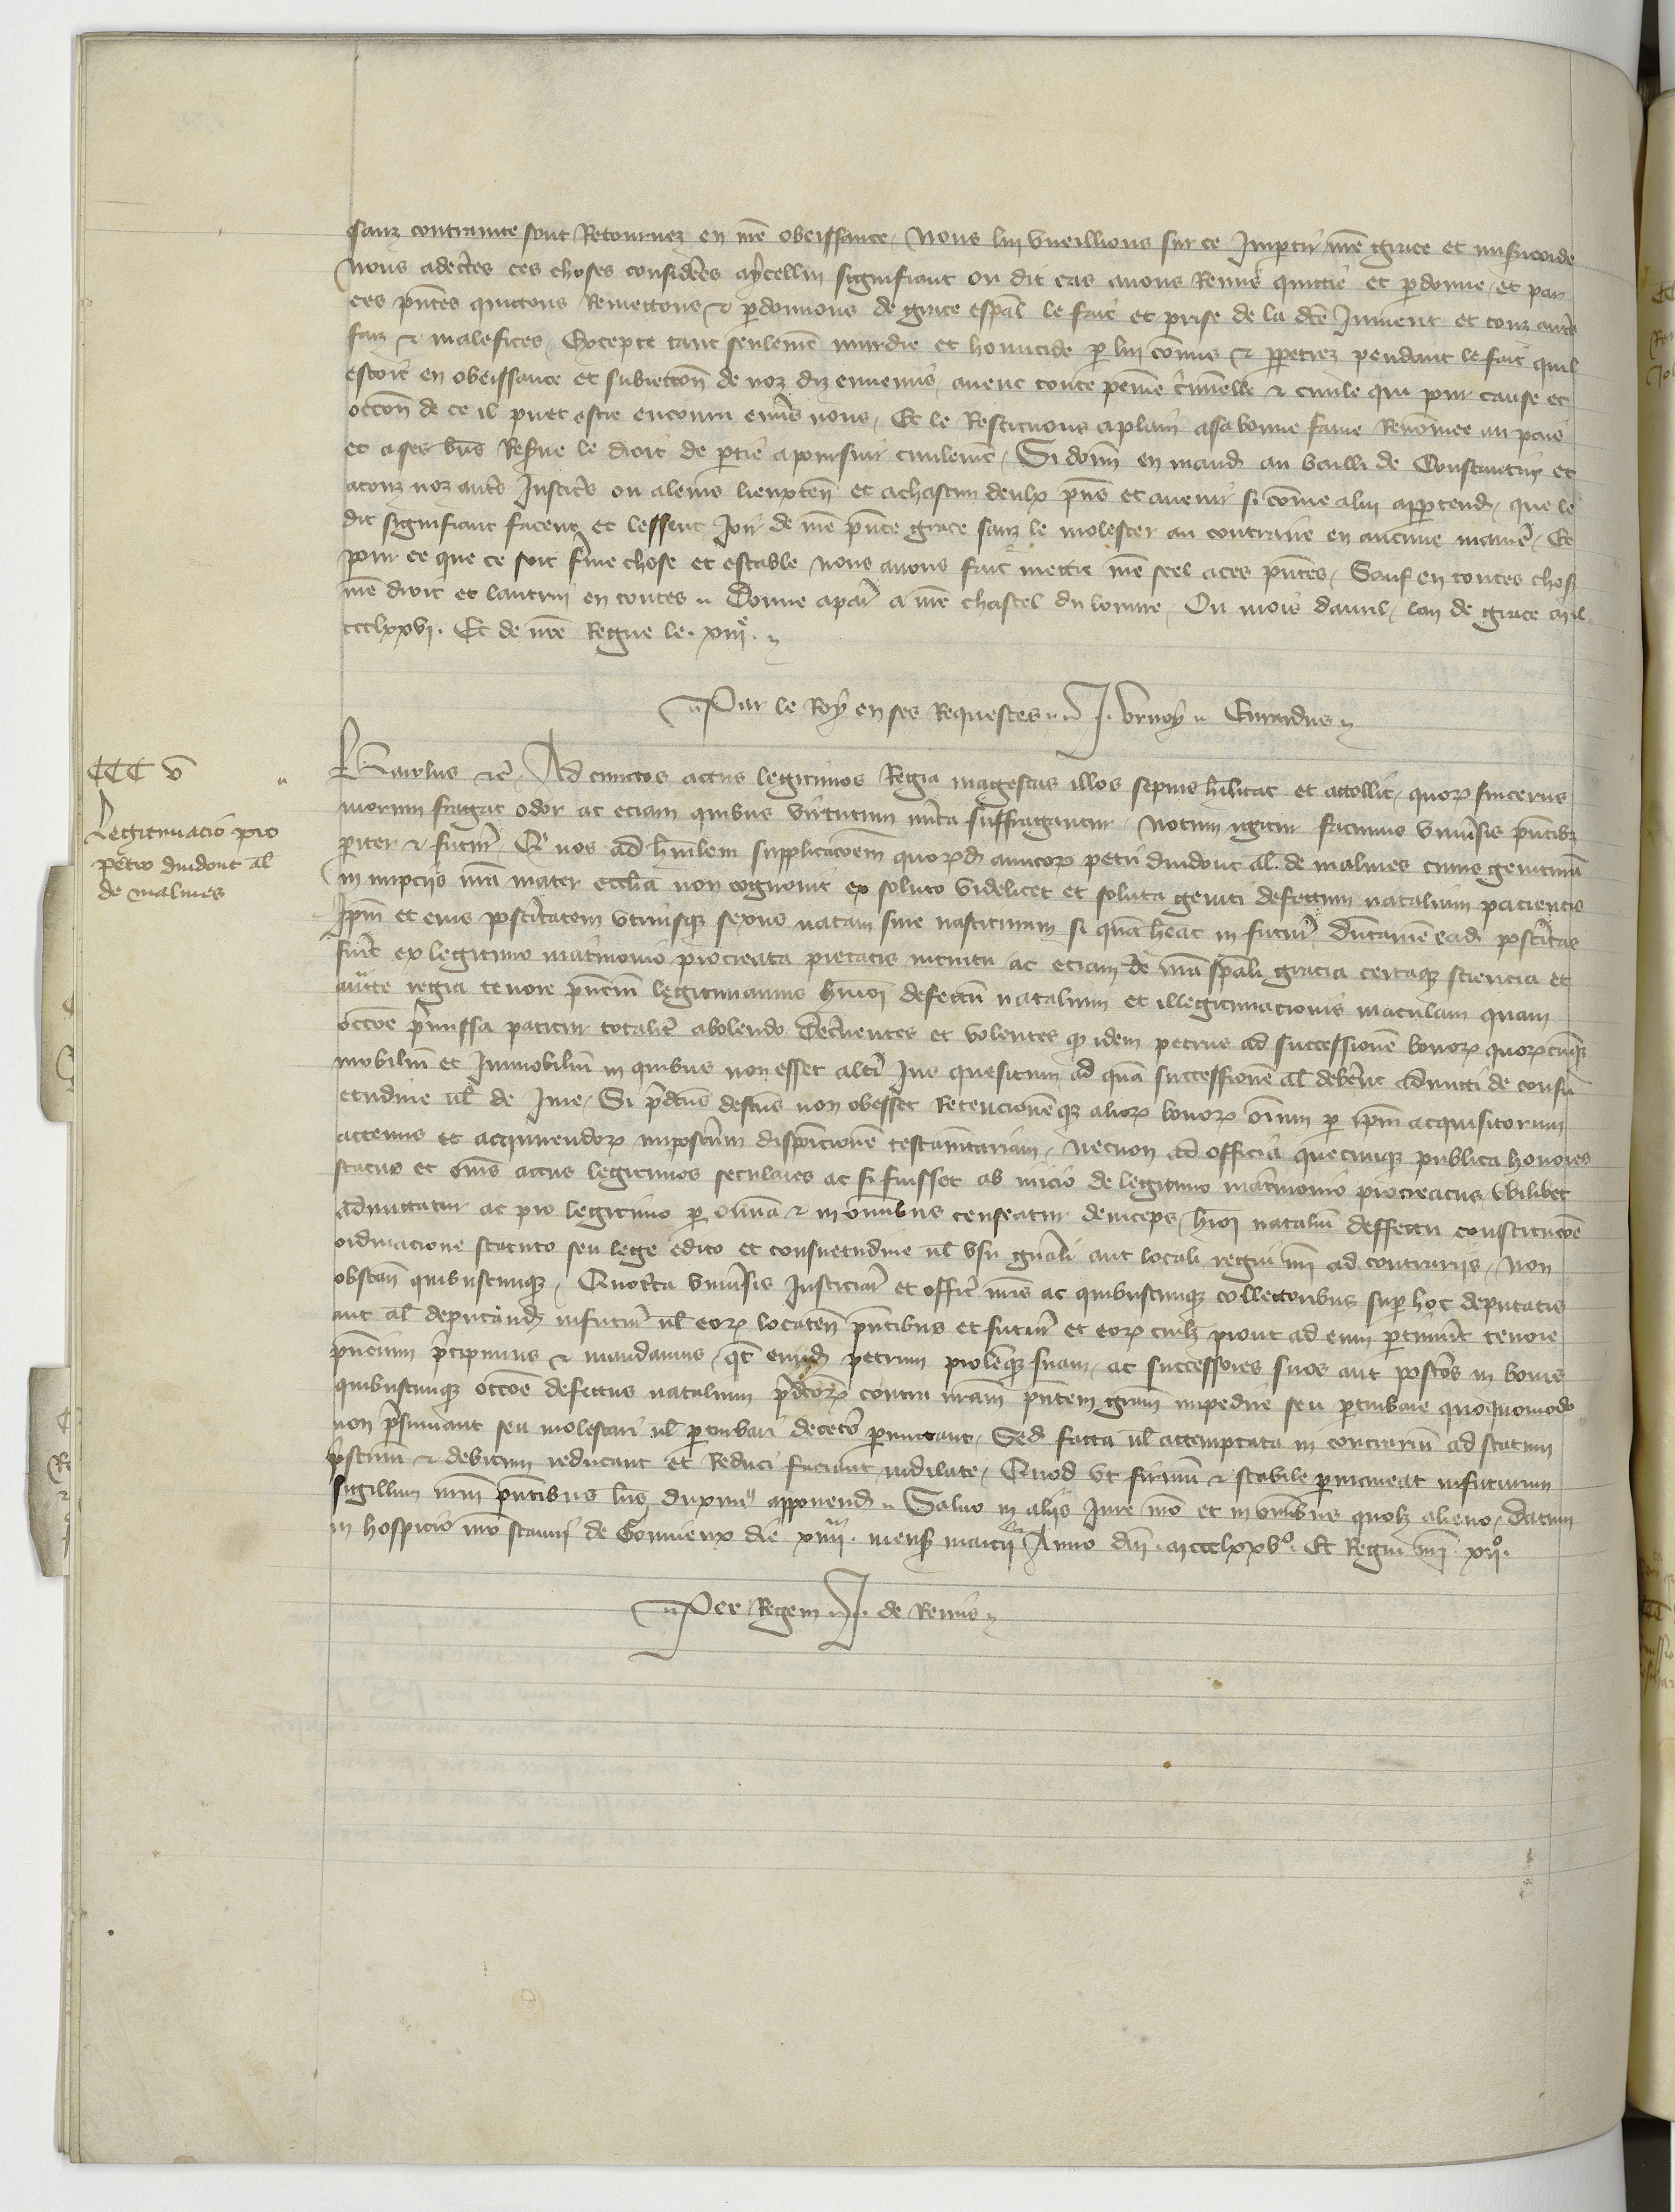 sanz contrainte sont Retournez en nre obeissance. Nous lui vueillions sur ce Impartir nre grace et misericorde
Nous adectes ces choses considerees aycellui signifiant ou dit cas avons Remis quittie et pardonne et par
ces pntes quittons Remettons & pardonnons de grace espal le fait et prise de la dte Jument et touz autres
faiz & malefices. Excepte tant seulemt murdre et homicide par lui commis & perpetrez pendant le fait quil
estoit en obeissance et subiection de noz diz ennemis, avent toute peine criminelle & civile que pour cause et
occon de ce il puet estre encouru envers nous. Et le Restituons aplain assa bonne fame Renommee au pais
et a ses biens Reserve le droit de partie apoursuir civilemt. Si donn en mand au bailli de Constantin et
atouz noz autres Justiciers ou aleurs lieuxten et achascun deulx pns et avenir si comme alui appartendra, que le
dit signifiant facent et lessent Joir de nre pnte grace sanz le molester au contraire en aucune maniere. Et
pour ce que ce soit ferme chose et estable nous avons fait mettre nre seel aces pntes. Sauf en toutes choses
nre droit et lautrui en toutes. Donne apar a nre chastel du louvre. Ou mois davril, lan de grace mil
ccclxxvi. Et de nre Regne le. xiije.
Par le Roy en ses Requestes. J. vernoy. Evrardus.
CCC V
Legitimacio pro
petro duidont al
de malines
Karolus etc. Ad cunctos actus legitimos Regia magestas illos sepius habilitat et attollit, quorum sincerus
morum fragrat odor ac eciam quibus virtutum merita suffragantur. Notum igitur facimus universis pntibus
pariter & futuris. Quod nos ad humilem supplicacoem quorumd amicorum petri duidont al. de malines cuius genituram
in nupciis nra mater ecclia non cognovit ex soluto videlicet et soluta geniti defectum natalium pacientis
Ipm et eius posteritatem utriusque sexus natam sive nascituram si quam heat in futur dumtamen ead posteritas
fuerit ex legitimo matrimonio procreata pietatis intuitu ac eciam de nra spali gracia certaque sciencia et
aucte regia tenore pncium legitimamus huiusmodi defectum natalium et illegitimacionis maculam quam
occoe premissa patitur totaliter abolendo Decernentes et volentes quod idem petrus ad successionem bonorum quorumcumque
mobilium et Immobilium in quibus non esset alteri Jus quesitum ad quam successionem al deberet admitti de consu
etudine vel de Jure. Si predictus defectus non obesset Retencionemque aliorum bonorum omnium per ipm acquisitorum
actenus et acquirendorum imposterum disposicionem testamentariam, necnon ad officia quecumque publica honores
status et omnes actus legitimos seculares ac si fuisset ab inicio de legitimo matrimonio procreatus ubilibet
admittatur ac pro legitimo per omnia & in omnibus censeatur deinceps, huiusmodi natalium deffectu constitucoe
ordinacione statuto seu lege edito et consuetudine vel usu generali aut locali regni nri ad contrariis. Non
obstan quibuscumque. Quocirca universis Justiciariis et offic nris ac quibuscumque collectoribus super hoc deputatis
aut al deputandis infuturum vel eorum locaten pntibus et futuris et eorum cuilibet prout ad eum pertinuerit tenore
pncium precipimus & mandamus, quat eumd petrum prolemque suam, ac successores suos aut posteros in bonis
quibuscumque occoe defectus natalium predictorum contra nram pntem gram impedire seu perturbare quoquomodo
non presumant seu molestari vel perturbari decetero permittant. Sed facta vel attemptata in contrarium ad statum
pristinum & debitum reducant et Reduci faciant indilate. Quod ut firmum & stabile permaneat infuturum
sigillum nrm pntibus lris duximus apponend. Salvo in aliis Jure nro et in omnibus quolibet alieno. Datum
in hospicio nro stanni de Gouvieux die xiiii. mensis marcii Anno dni. mccclxxvo. Et Regni nri xijo.
Per Regem. J. de Remis.